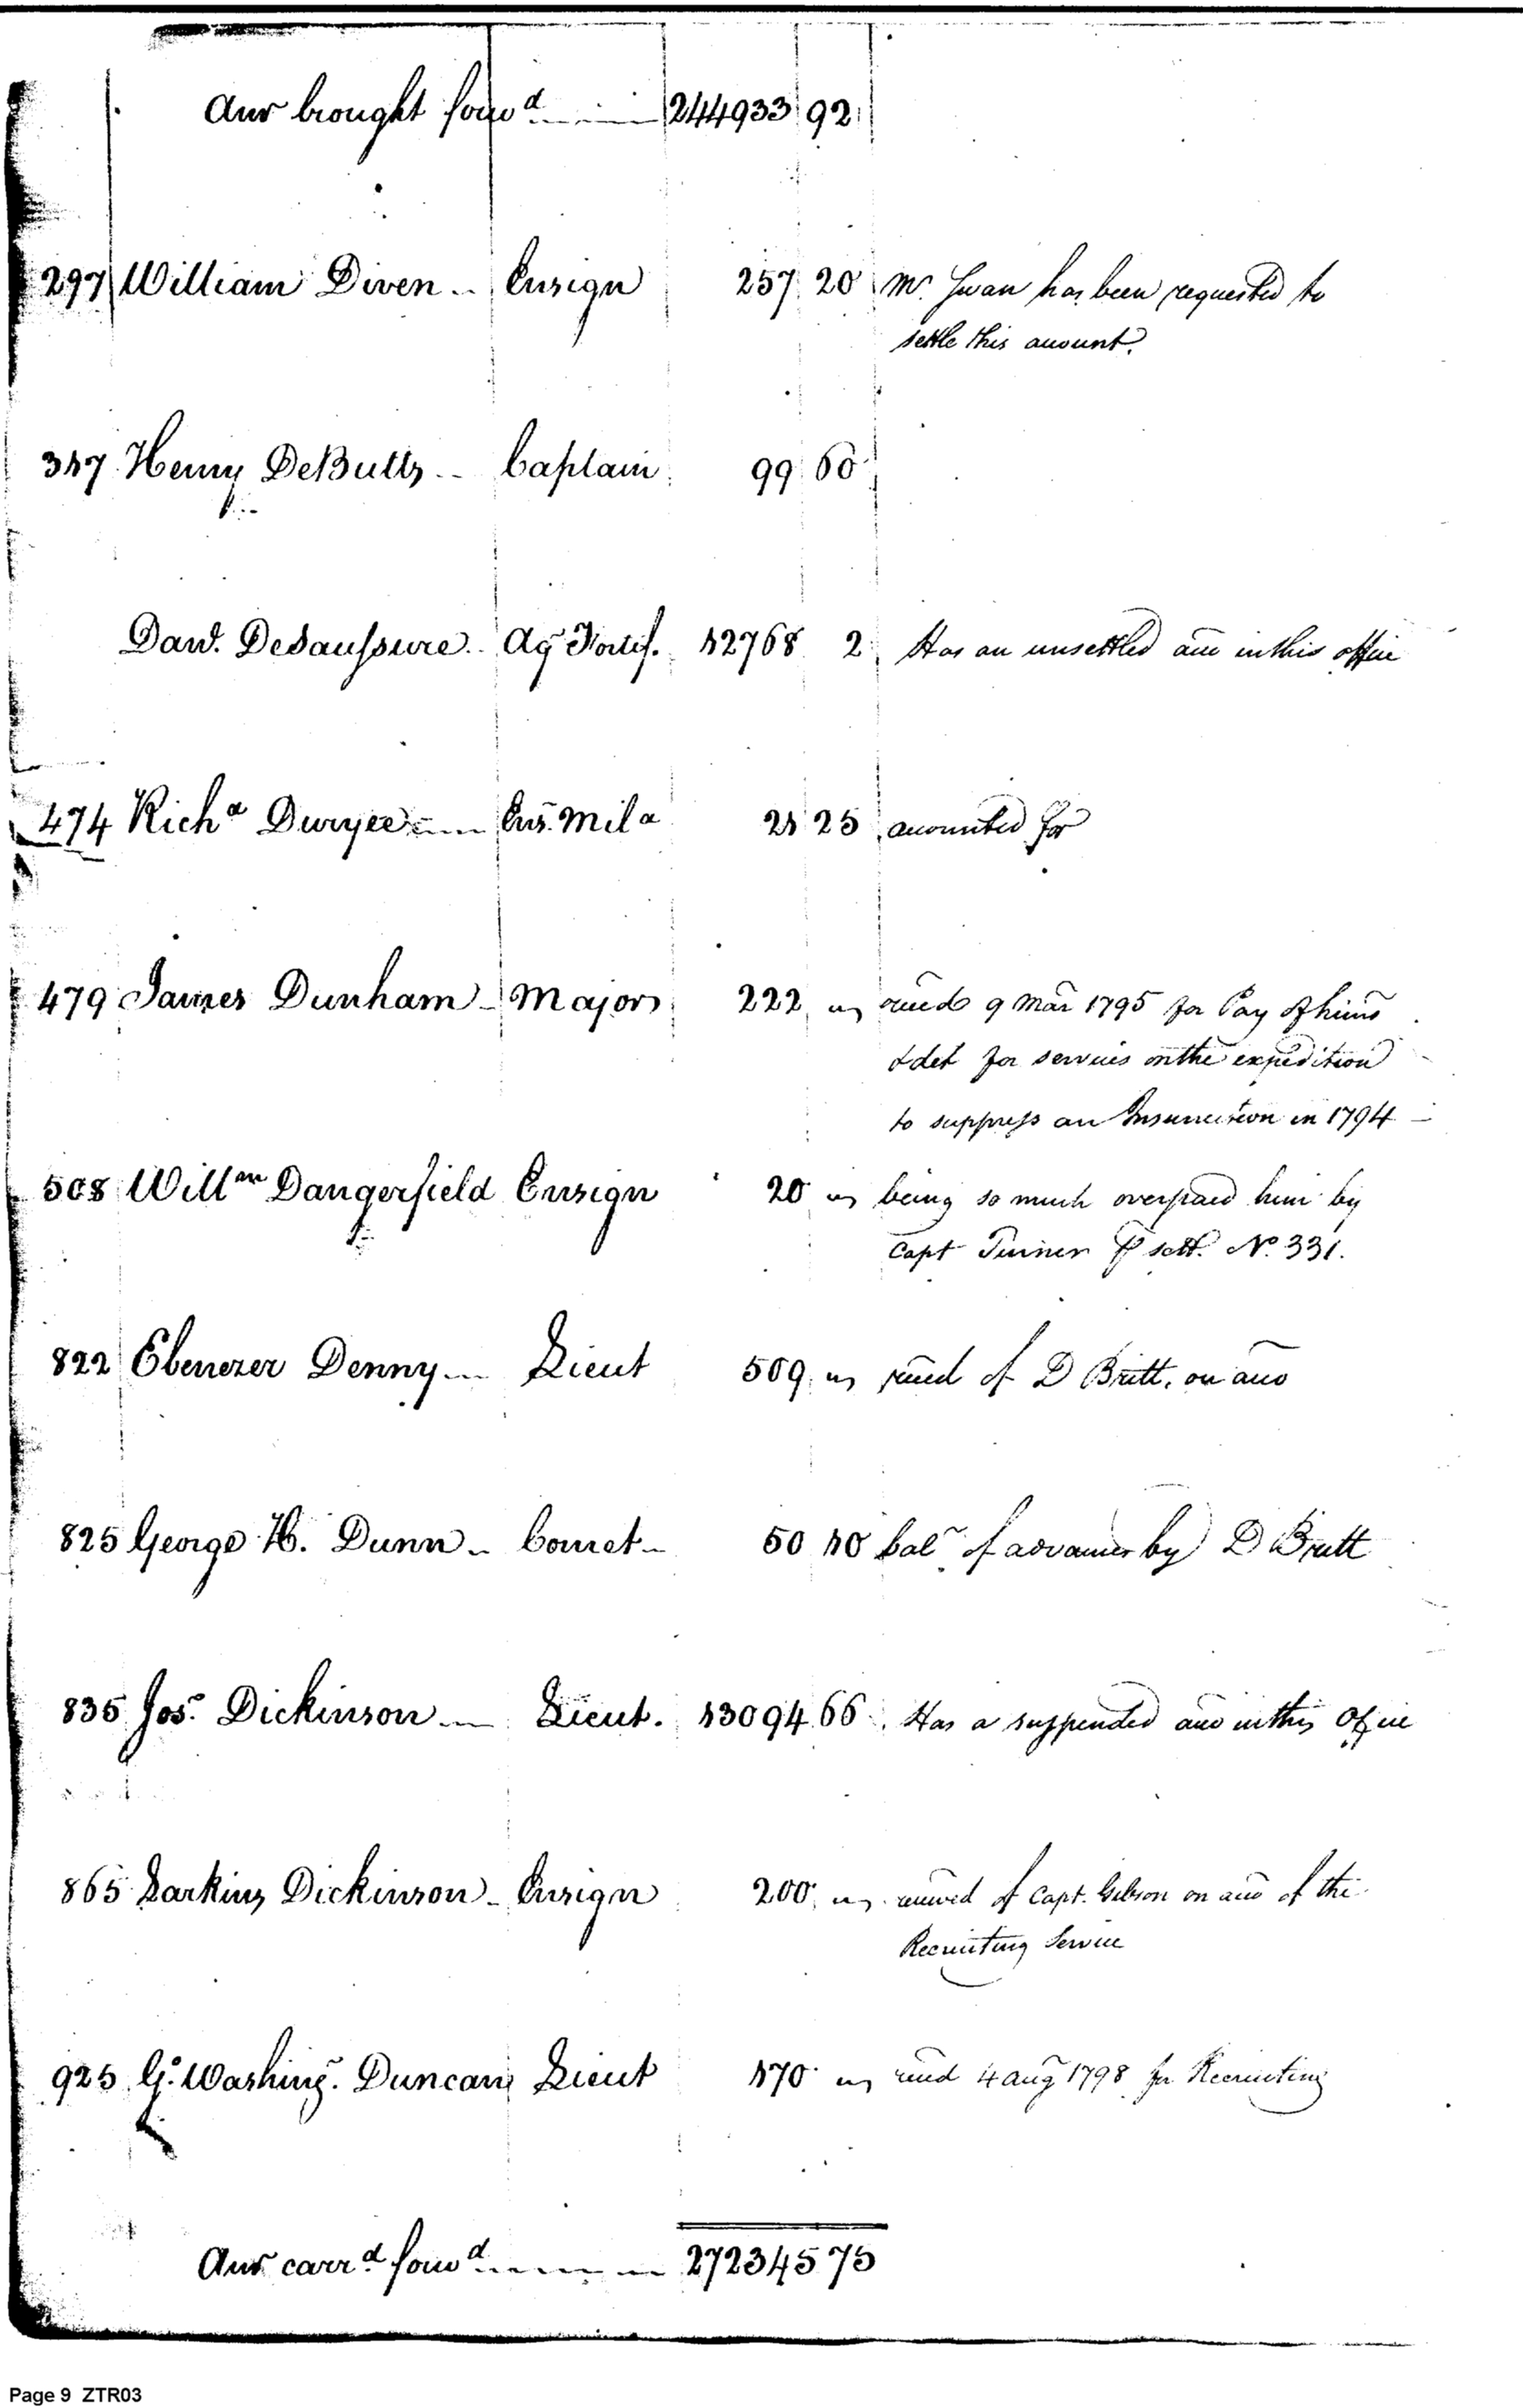 Amo brought forwd 244933 92
297 William Diven Ensign 257 20 Mr. Swan has been requested to
settle this account.
317 Henry DeButts Captain 99 60
Danl. Desaussure Ag Fortif. 12768 2 Has an unsettled acco in this office
474 Richd Duryee Ens. Mila 21 25 accounted for
479 James Dunham Major 222 " recd 9 Mar 1795 for Pay of hims
& det for services on the expedition
to suppress an Insurrection in 1794
508 Willm Dangerfield Ensign 20 " being so much overpaid him by
Capt Turner ⅌ sett. No. 331.
822 Ebenezer Denny Lieut 509 " recd of D Britt, on acco
825 George H. Dunn Cornet 50 10 balce of advances by D Britt
835 Jos. Dickinson Lieut. 13094 66 Has a suspended acco in this Office
865 Larkins Dickinson Ensign 200 " received of Capt. Gibson on acco of the
Recruiting Service
925 Go. Washing. Duncan Lieut 170 " recd 4 Aug 1798 for Recruiting
Amo carrd forwd 272345 75
Page 9 ZTR03